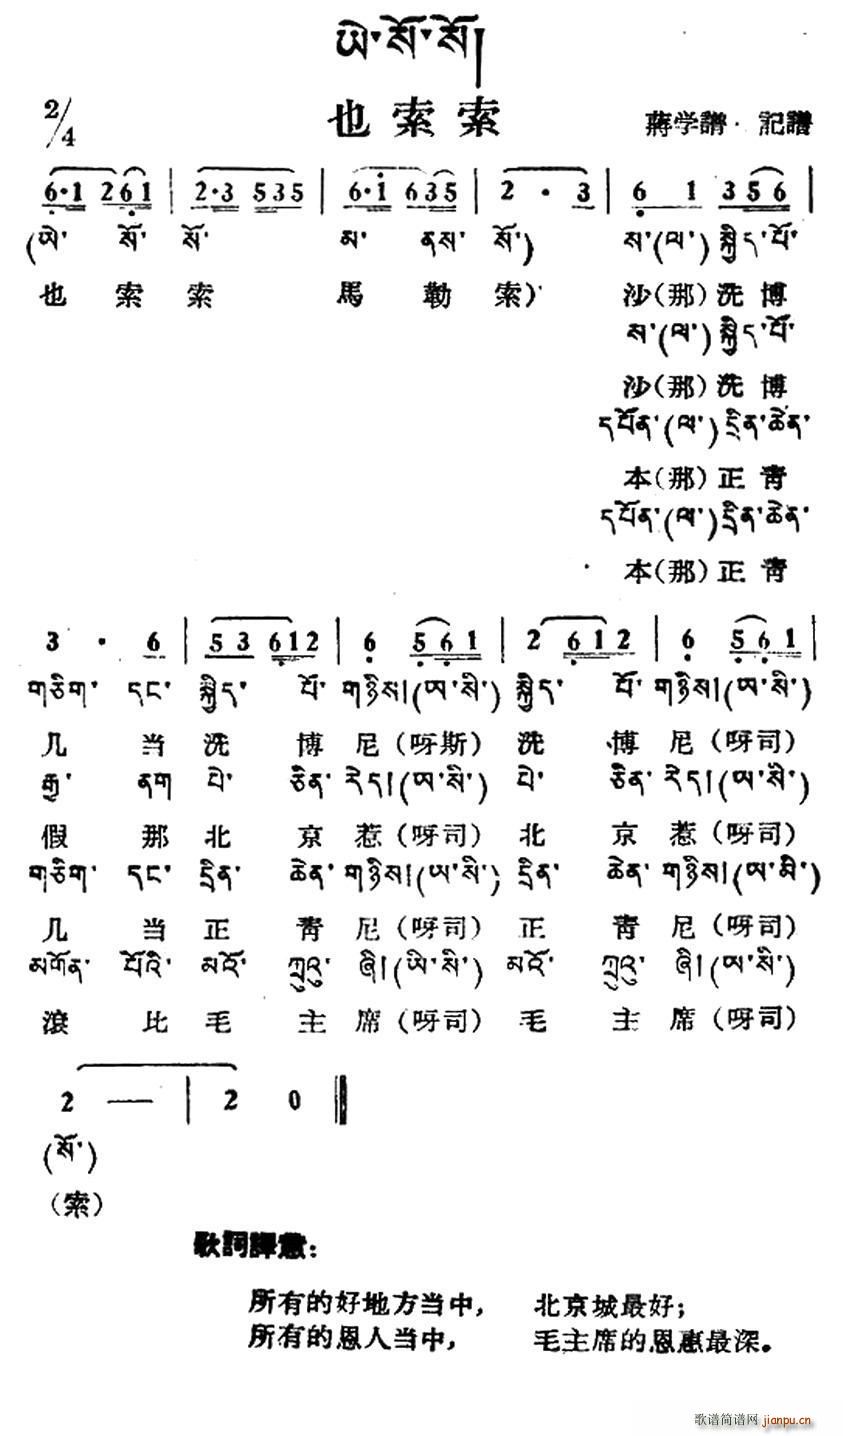 ཡེ་སོ་སོ།
2/4
也索索
蔣学譜·記譜
6·1 261 | 2·3 535 | 6·i 635 | 2 · 3 | 6 1 356 |
(ཨེ་ སོ་ སོ་ མ་ ནས་ སོ་) ས་(ལ་)སྐྱིད་པོ་
也 索 索 馬 勒 索) 沙(那)洗博
ས་(ལ་)སྐྱིད་པོ་
沙(那)洗博
དཔོན་(ལ་)དྲིན་ཆེན་
本(那)正靑
དཔོན་(ལ་)དྲིན་ཆེན་
本(那)正靑
3 · 6 | 53 612 | 6 561 | 2 612 | 6 561 |
གཅིག་ དང་ སྐྱིད་ པོ་ གཉིས།(ཨ་སི་) སྐྱིད་ པོ་ གཉིས།(ཨ་སི་)
几 当 洗 博 尼(呀斯) 洗 博 尼(呀司)
རྒྱ་ ནག པེ་ ཅིན་ རེད།(ཨ་སི་) པེ་ ཅིན་ རེད།(ཨ་སི་)
假 那 北 京 惹(呀司) 北 京 惹(呀司)
གཅིག་ དང་ དྲིན་ ཆེན་ གཉིས།(ཨ་སི་) དྲིན་ ཆེན་ གཉིས།(ཨ་སི་)
几 当 正 靑 尼(呀司) 正 靑 尼(呀司)
མགོན་ པོའི་ མའོ་ ཀྲུའུ་ ཞི།(ཨི་སི་) མའོ་ ཀྲུའུ་ ཞི།(ཨ་སི་)
滾 比 毛 主 席(呀司) 毛 主 席(呀司)
2 — | 2 0 ‖
(སོ་)
(索)
歌詞譯意:
所有的好地方当中, 北京城最好;
所有的恩人当中, 毛主席的恩惠最深。
歌谱简谱网 jianpu.cn